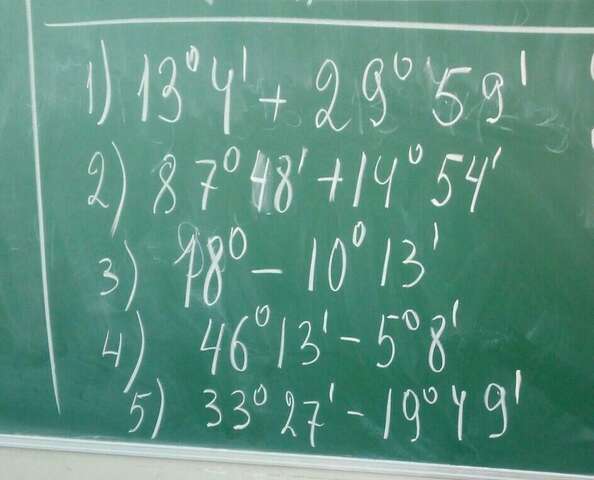 1) 13°4' + 29°59'
2) 87°48' + 14°54'
3) 18° - 10°13'
4) 46°13' - 5°8'
5) 33°27' - 19°49'